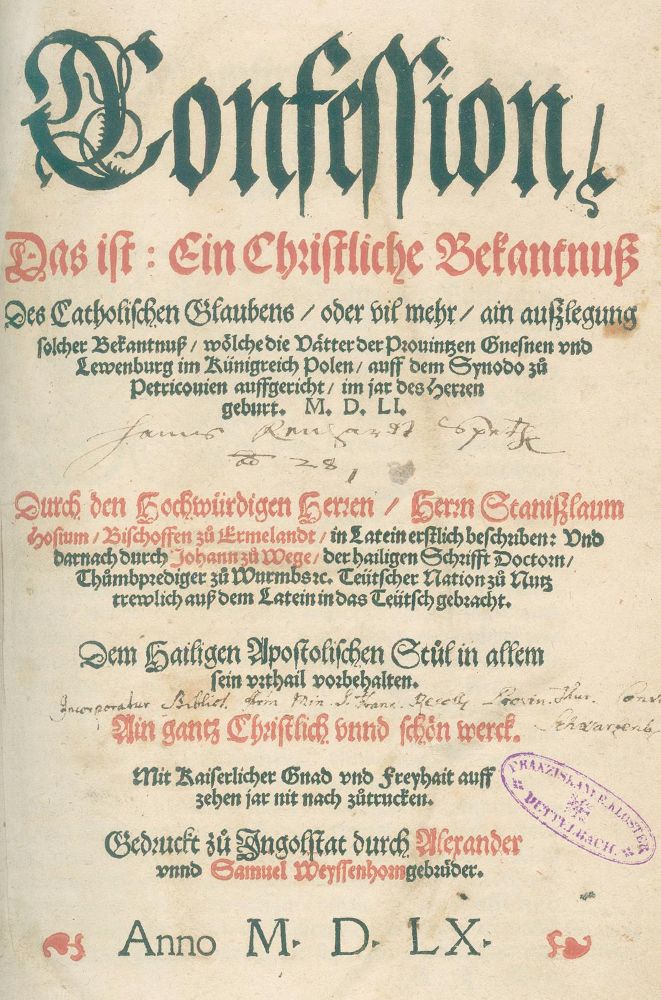 Confession/
Das ist: Ein Christliche Bekantnuß
Des Catholischen Glaubens / oder vil mehr / ain außlegung
solcher Bekantnuß / wölche die Vätter der Prouintzen Gnesnen vnd
Lewenburg im Künigreich Polen / auff dem Synodo zů
Petricouien auffgericht / im jar des Herren
geburt. M. D. LI.
Durch den Hochwürdigen Herren / Herrn Stanißlaum
Hosium / Bischoffen zů Ermelandt / in Latein erstlich beschriben: Vnd
darnach durch Johann zů Wege / der hailigen Schrifft Doctorn /
Thůmbprediger zů Wurmbs ꝛc. Teütscher Nation zů Nutz
trewlich auß dem Latein in das Teütsch gebracht.
Dem Hailigen Apostolischen Stůl in allem
sein vrthail vorbehalten.
Incorporatur Bibliot.
Ain gantz Christlich vnnd schön werck.
Schwarzenb
Mit Kaiserlicher Gnad vnd Freyhait auff
zehen jar nit nach zůtrucken.
FRANZISKANER-KLOSTER
DETTELBACH
Gedruckt zů Ingolstat durch Alexander
vnnd Samuel Weyssenhorn gebrüder.
Anno M. D. LX.